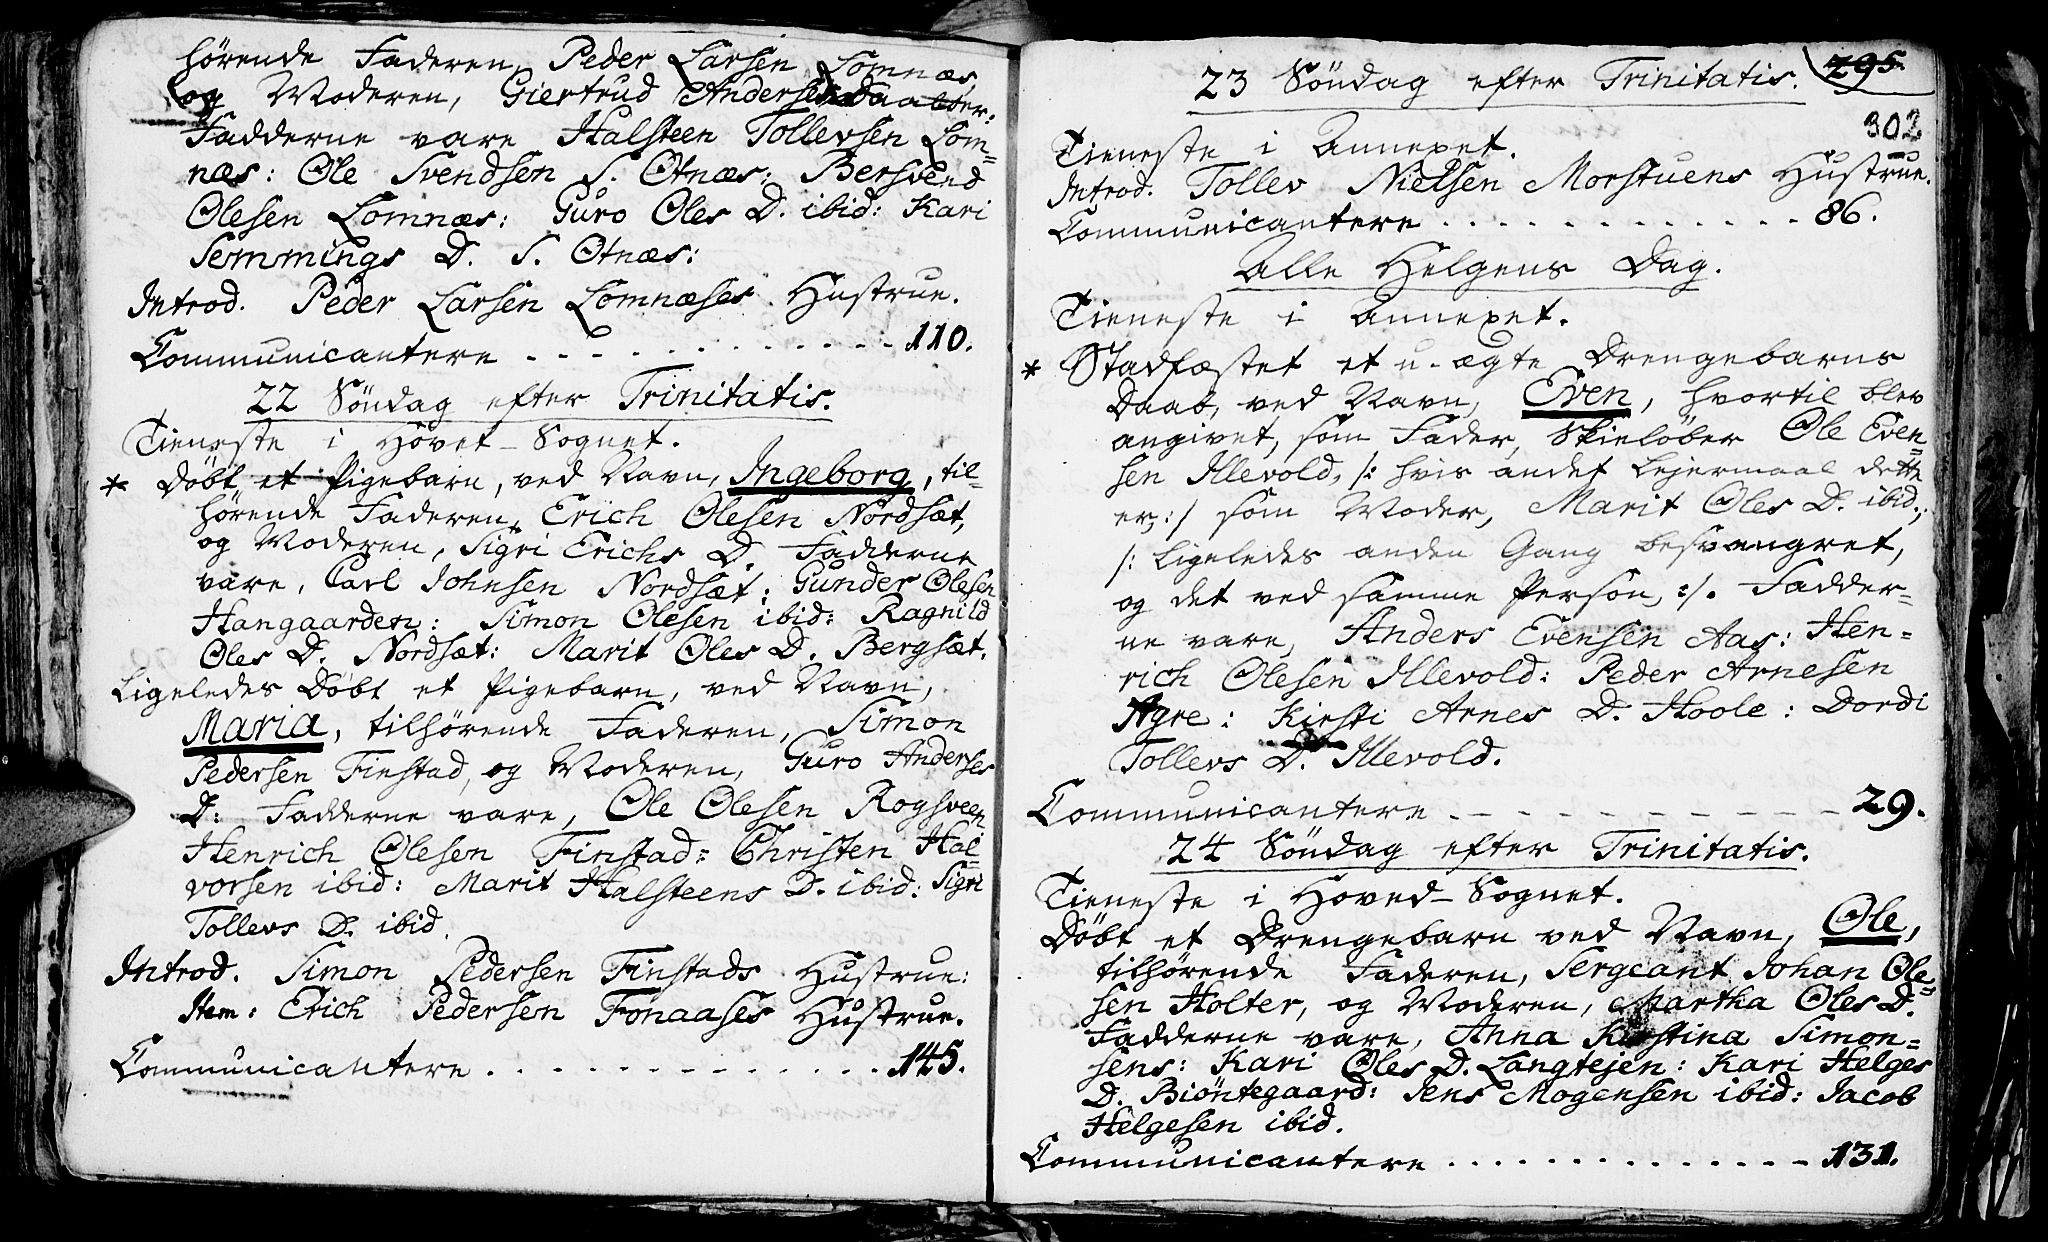 hörende Faderen, Peder Larsen Lomnæs,
og Moderen, Giertrud Andersdaatter:
Fadderne vare Halsteen Tollevsen Lom=
næs: Ole Svendsen S. Otnæs: Bersvend
Olesen Lomnæs: Guro Oles D. ibid: Kari
Semmings D. S. Otnæs:
Introd. Peder Larsen Lomnæses Hustrue.
Communicantere - - - - - - - - - - - - 110.
22 Söndag efter Trinitatis.
Tieneste i Hovet-Sognet.
* Döbt et Pigebarn, ved Navn, Ingeborg, til=
hörende Faderen, Erich Olesen Nordsæt,
og Moderen, Sigri Erichs D. Fadderne
vare, Carl Johnsen Nordsæt: Gunder Olesen
Hangaarden: Simon Olesen ibid: Ragnild
Oles D. Nordsæt: Marit Oles D. Bergsæt.
Ligeledes Döbt et Pigebarn, ved Navn,
Maria, tilhörende Faderen, Simon
Pedersen Finstad, og Moderen, Guro Anderses
D: Fadderne vare, Ole Olesen Rogsveen
Henrich Olesen Finstad: Christen Hal=
vorsen ibid: Marit Halsteens D. ibid: Sigri
Tollevs D. ibid.
Introd. Simon Pedersen Finstads Hustrue:
Item: Erich Pedersen Fonaases Hustrue.
Communicantere . . . . . . . . . . . . 145.
295
302
23 Söndag efter Trinitatis.
Tieneste i Annexet.
Introd. Tollev Nielsen Morstuens Hustrue.
Communicantere . . . . . . . . . . . . 86.
Alle Helgens Dag.
Tieneste i Annexet.
* Stadfæstet et u-ægte Drengebarns
Daab, ved Navn, Even, hvortil blev
angivet, som Fader, Skielöber Ole Even=
sen Illevold, /: hvis andet Lejermaal dette
er, :/ som Moder, Marit Oles D. ibid,;
/: Ligeledes anden Gang besvangret,
og det ved samme Person, :/. Fadder=
ne vare, Anders Evensen Aas: Hen=
rich Olesen Illevold: Peder Arnesen
Agre: Kirsti Arnes D. Hoole: Dordi
Tollevs D. Illevold.
Communicantere - - - - - - - - - - - - 29.
24 Söndag efter Trinitatis.
Tieneste i Hoved-Sognet.
Döbt et Drengebarn ved Navn, Ole,
tilhörende Faderen, Sergeant Johan Ole=
sen Holter, og Moderen, Martha Oles D.
Fadderne vare, Anna Kirstina Simon=
sens: Kari Oles D. Langtejen: Kari Helges
D. Biöntegaard: Jens Mogensen ibid: Jacob
Helgesen ibid.
Communicantere . . . . . . . . . . . . 131.